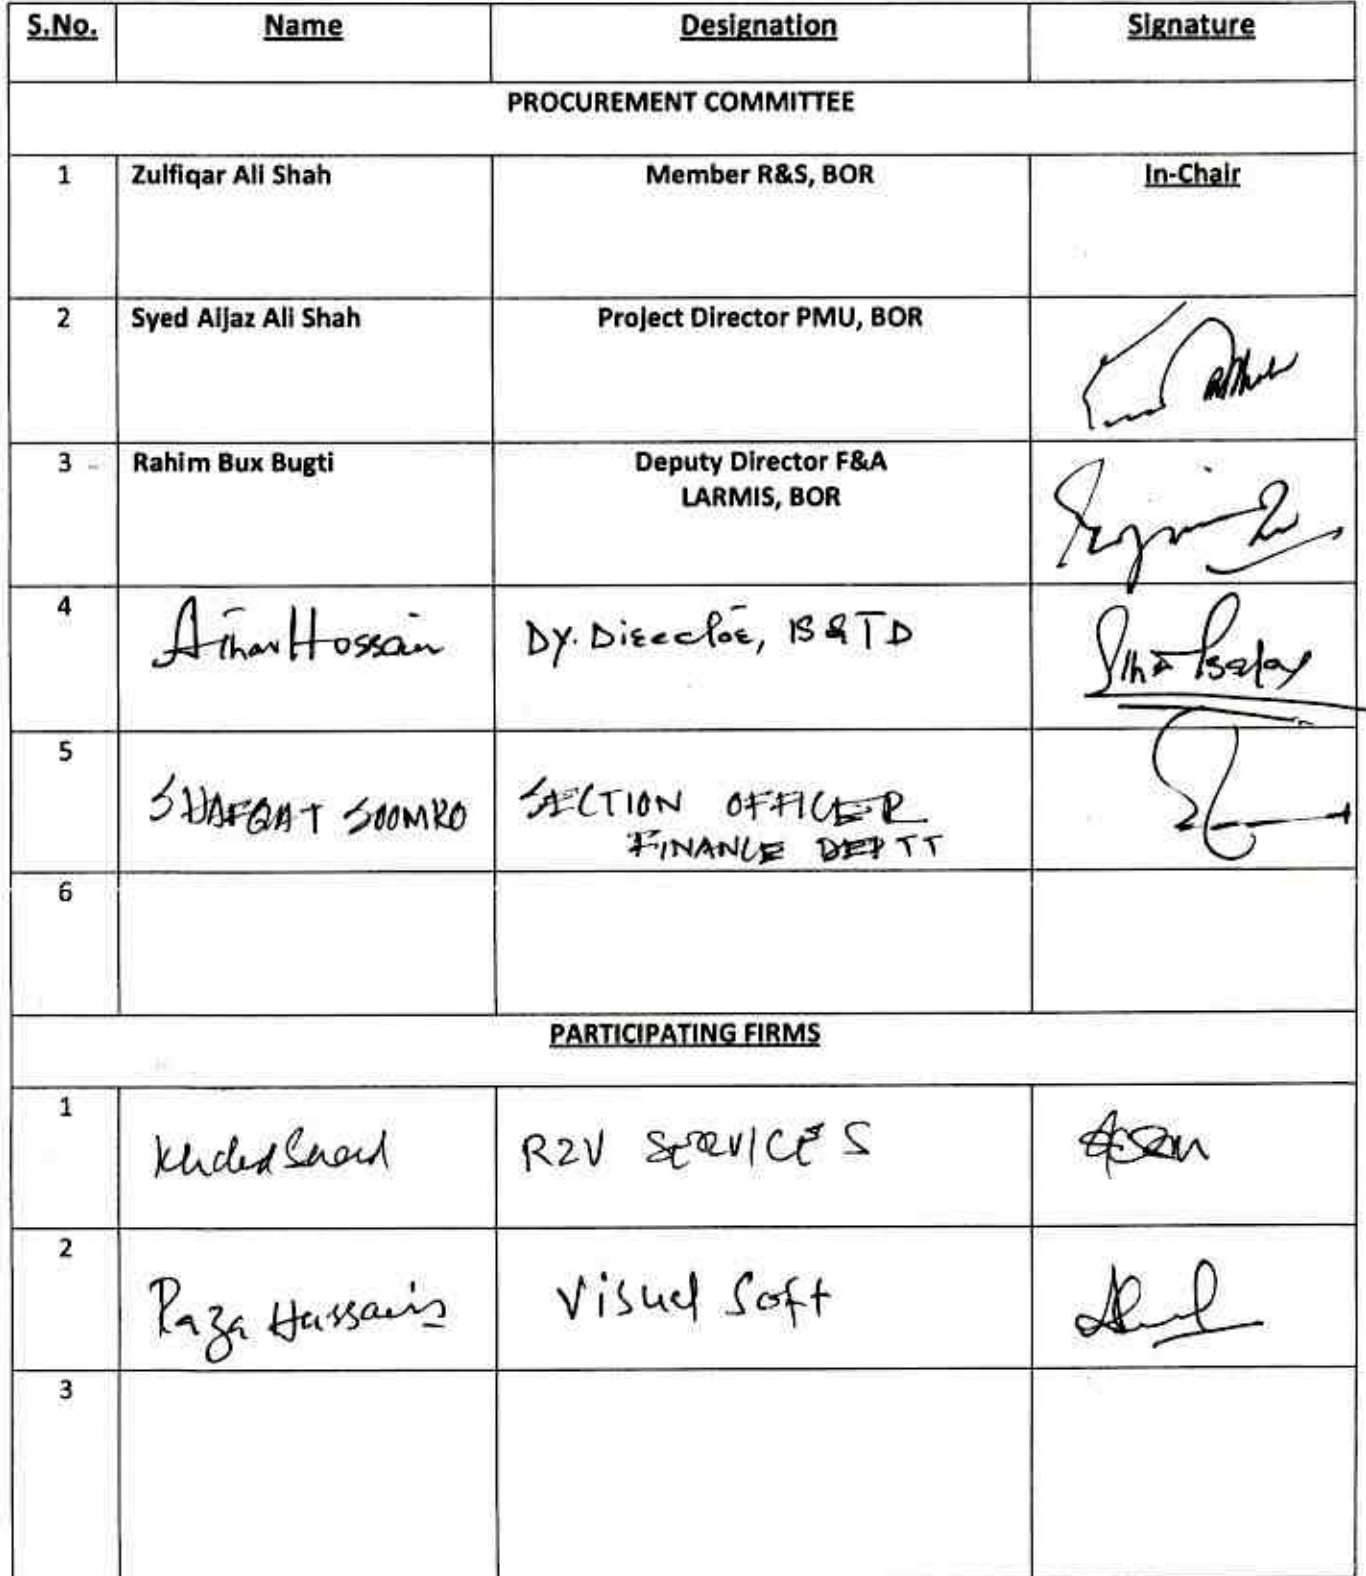 S.No. Name Designation Signature
PROCUREMENT COMMITTEE
1 Zulfiqar Ali Shah Member R&S, BOR In-Chair
2 Syed Aijaz Ali Shah Project Director PMU, BOR
3 Rahim Bux Bugti Deputy Director F&A
LARMIS, BOR
4 Athar Hossain Dy. Director, IS&TD
5 SHAFQAT SOOMRO SECTION OFFICER
FINANCE DEPTT
6
PARTICIPATING FIRMS
1 Khaled Saeed R2V SERVICES
2 Raza Hussain Visual Soft
3